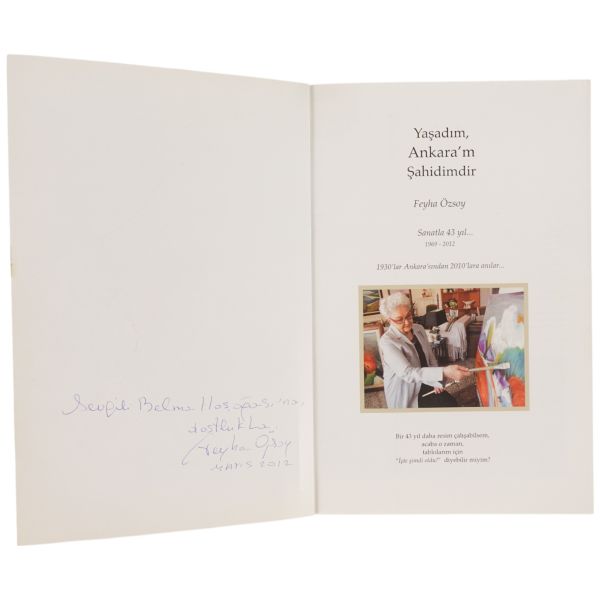 Sevgili Belma Hasoğası'na,
dostlukla,
Feyha Özsoy
MARS 2012
Yaşadım,
Ankara'm
Şahidimdir
Feyha Özsoy
Sanatla 43 yıl...
1969 - 2012
1930'lar Ankara'sından 2010'lara anılar...
Bir 43 yıl daha resim çalışabilsem,
acaba o zaman,
tablolarım için
"İşte şimdi oldu!" diyebilir miyim?